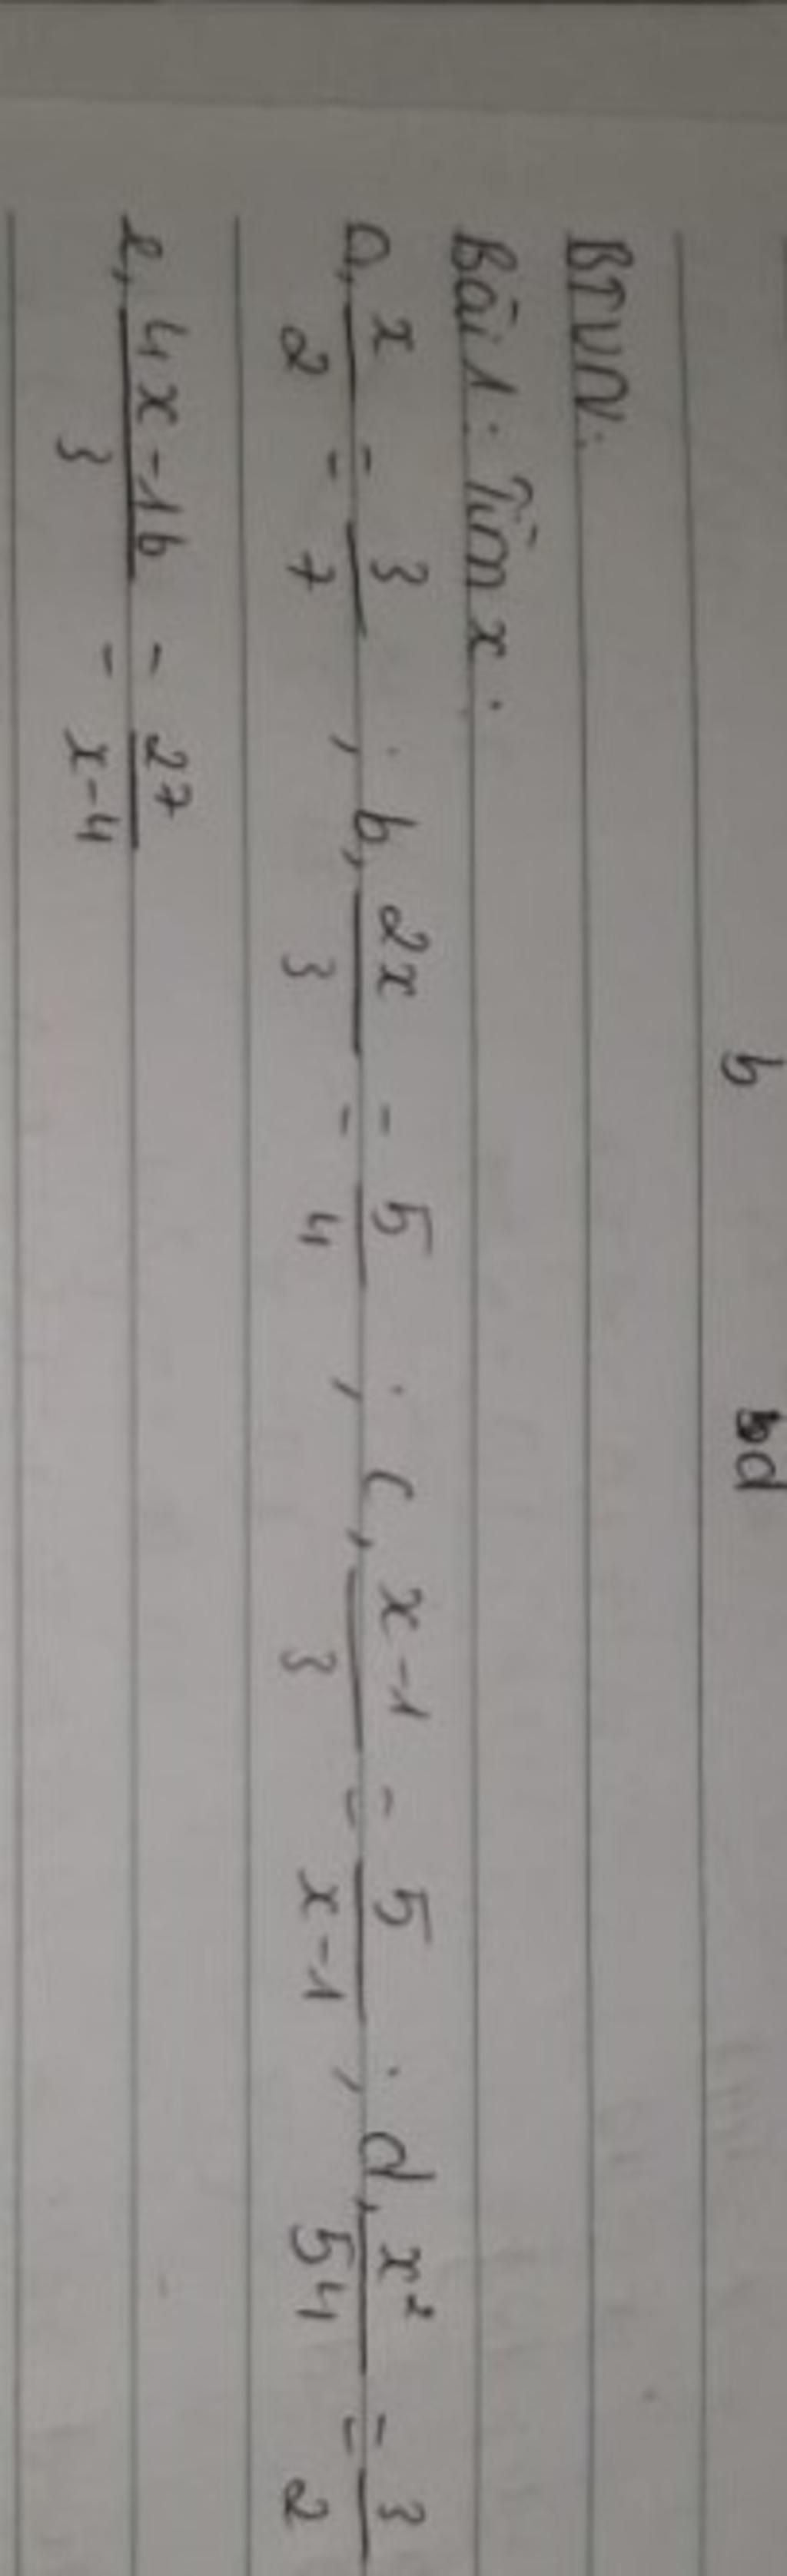 b bd
BTVN:
Bài 1: Tìm x.
a, x/2 = 3/7 ; b, 2x/3 = 5/4 ; c, x-1/3 = 5/x-1 ; d, x²/54 = 3/2
e, 4x-16/3 = 27/x-4